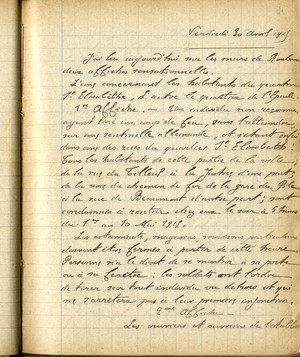 Vendredi 30 Avril 1915
J'ai lu aujourd'hui sur les murs de Roubaix
deux affiches sensationnelles.
L'une concernant les habitants du quartier
Ste Elisabeth, l'autre le quartier de l'Épeule
1ère Affiche. - Un individu non reconnu,
ayant tiré un coup de feu, sans l'atteindre
sur une sentinelle allemande, et s'étant enfui
dans une des rues du quartier Ste Elisabeth:
Tous les habitants de cette partie de la ville,
de la rue du Tilleul à la d'une part,
de la voie du chemin de fer de la gare du
à la rue de Beaumont d'autre part; sont
condamnés à rester chez eux le soir à 5 heures
du 1er au 10 Mai 1915.
Les estaminets, magasins, maisons particulières
doivent être fermés à partir de cette heure
Personne n'a le droit de se montrer à sa porte
ou à sa fenêtre: les soldats ont l'ordre
de tirer sur tout individu vu dehors et qui
ne s'arrêtera pas à leur première injonction.
2me Affiche
Les ouvriers et ouvrières de